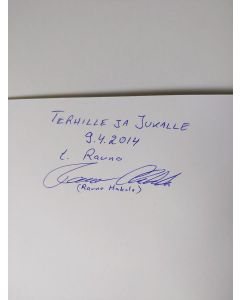 TERHILLE JA JUKALLE
9.4.2014
t. Rauno
(Rauno Makela)